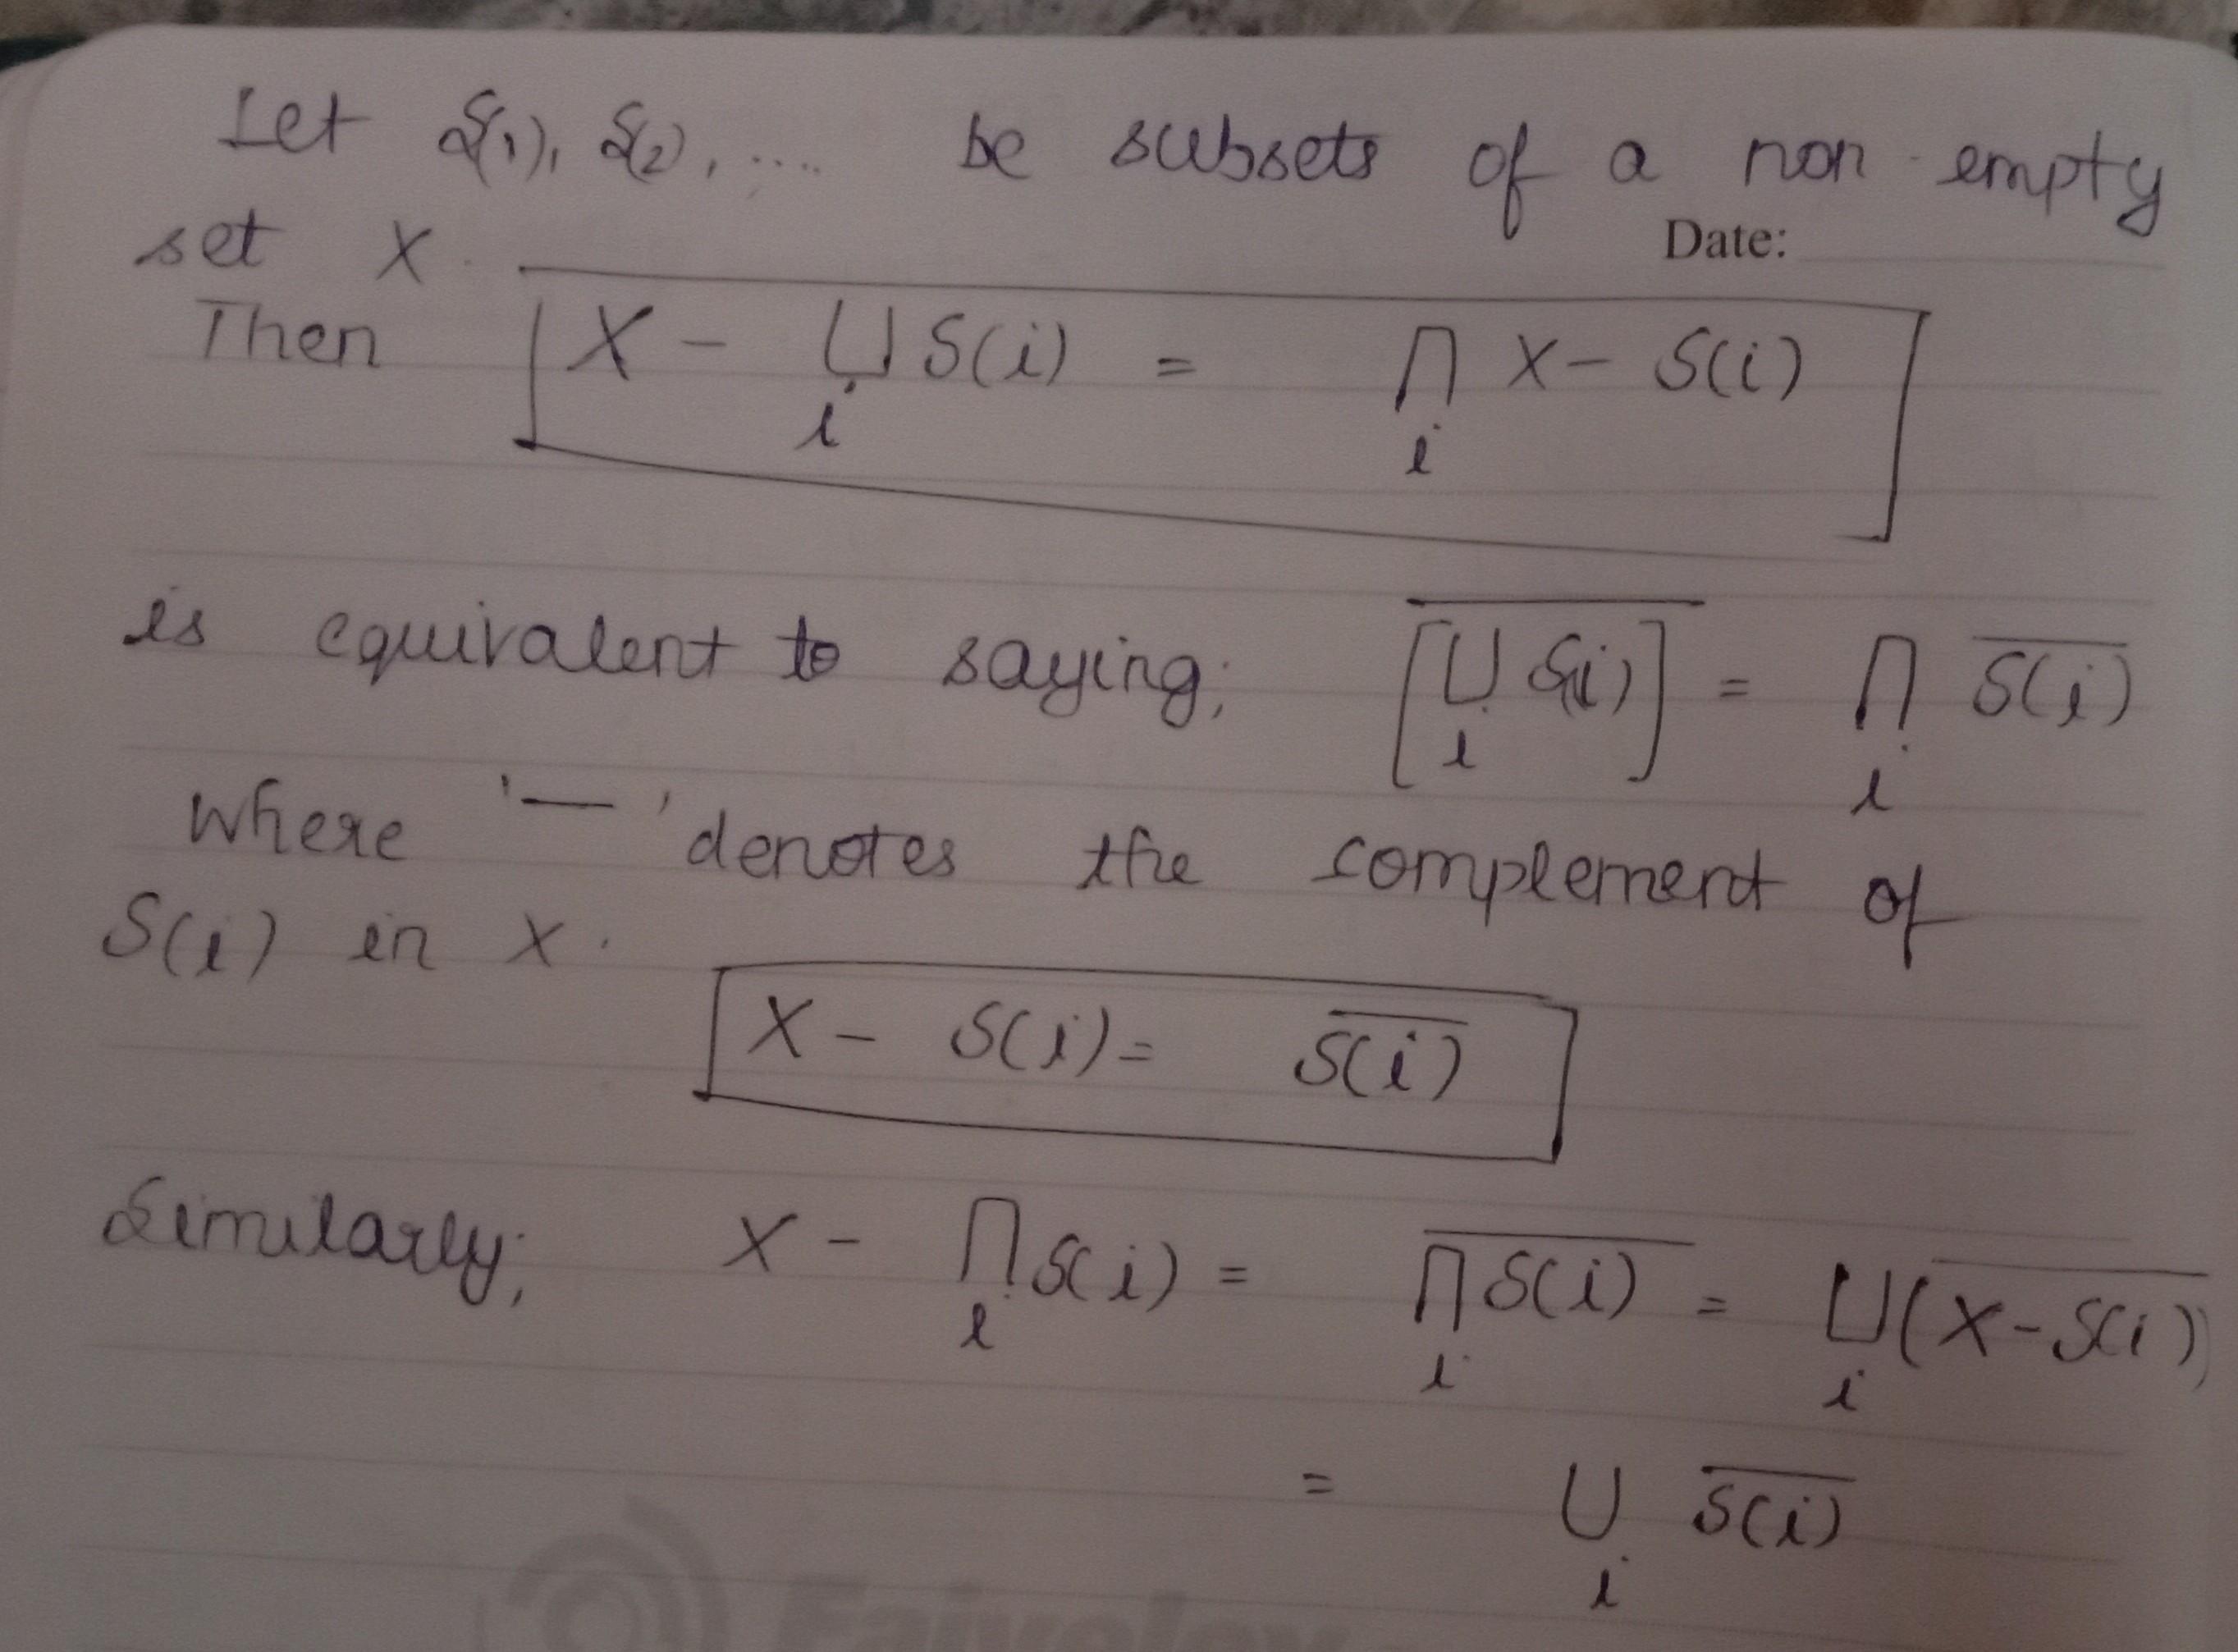 Let S(1), S(2), .... be subsets of a non empty
Date:
set X.
Then X - ⋃_i S(i) = ⋂_i X - S(i)
is equivalent to saying; \overline{[⋃_i S(i)]} = ⋂_i \overline{S(i)}
where '—' denotes the complement of
S(i) in X.
X - S(i) = \overline{S(i)}
Similarly; X - ⋂_i S(i) = \overline{⋂_i S(i)} = ⋃_i (\overline{X - S(i)})
= ⋃_i \overline{S(i)}
Faiveley